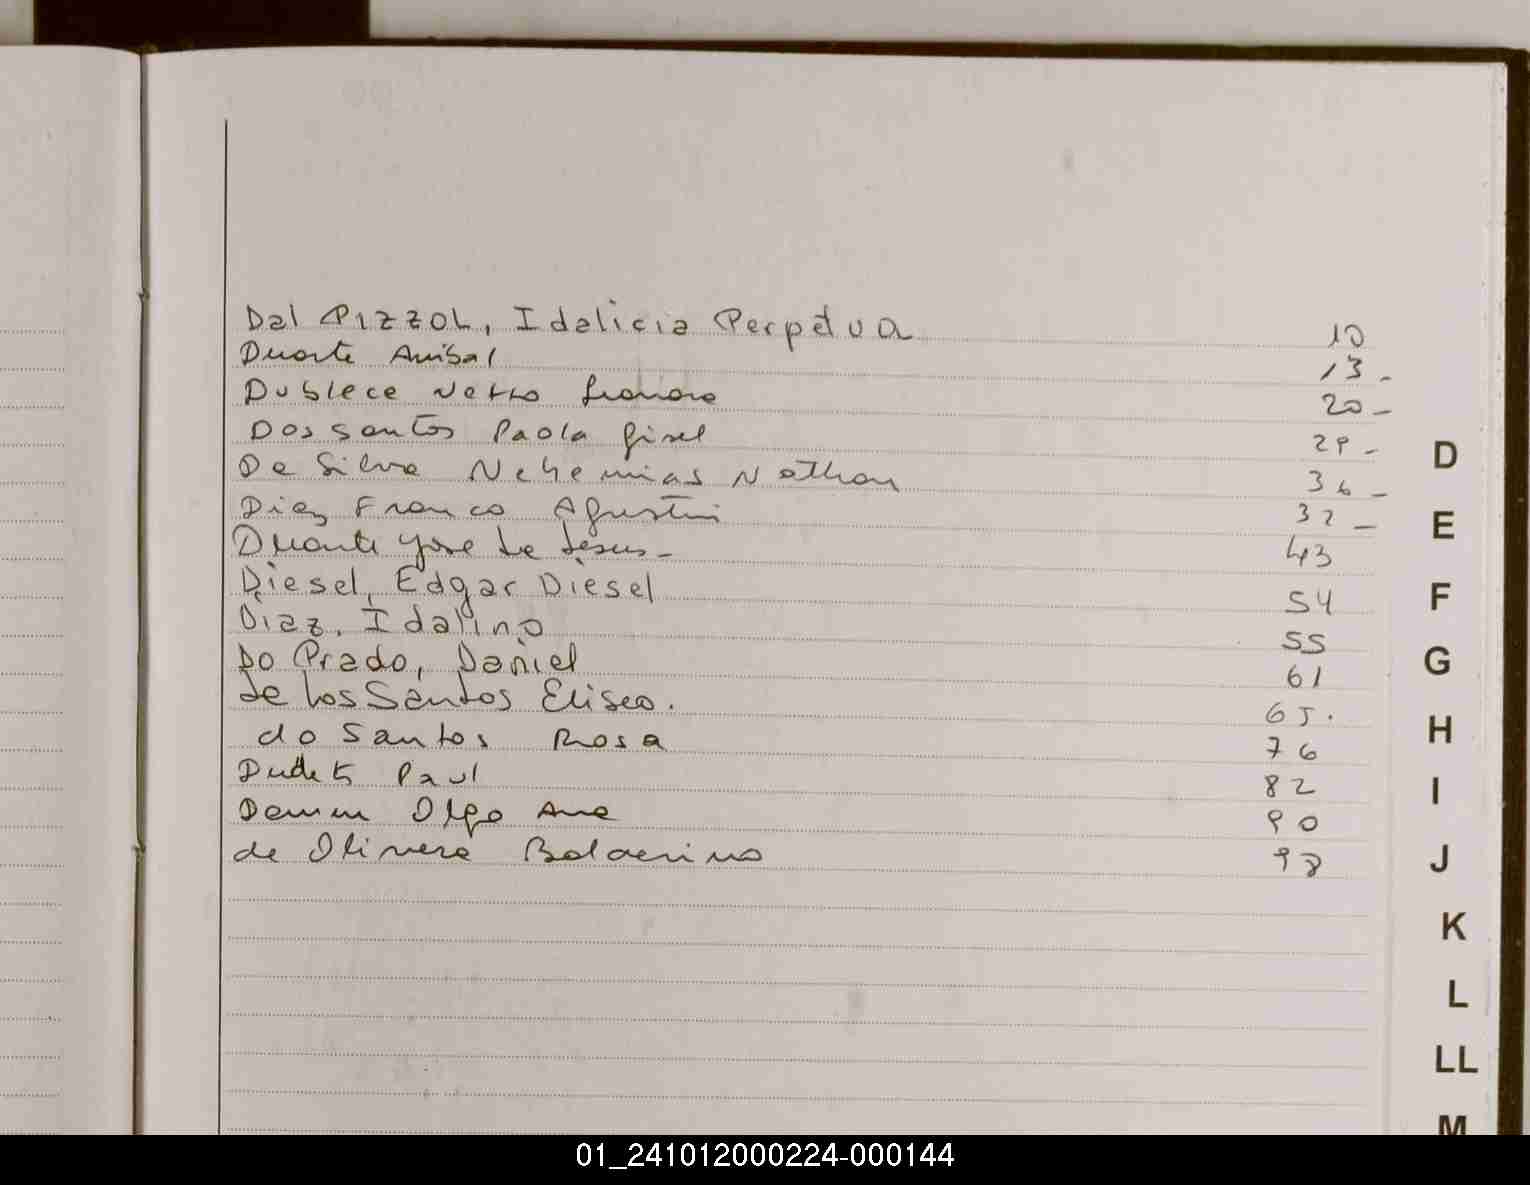 Dal PIZZOL, Idalicia Perpétua 10
Duarte Anibal 13 -
Dublece Netto 20 -
Dos Santos Paola Gisel 29 -
Da Silva Nehemias Nathan 36 -
Diaz Franco Agustin 32 -
Duarte Jose de Jesus - 43
Diesel, Edgar Diesel 54
Diaz, Idalino 55
Do Prado, Daniel 61
de los Santos Eliseo. 65.
do Santos Rosa 76
Paul 82
Olga Ana 90
de Olivera 98
D
E
F
G
H
I
J
K
L
LL
M
01_241012000224-000144